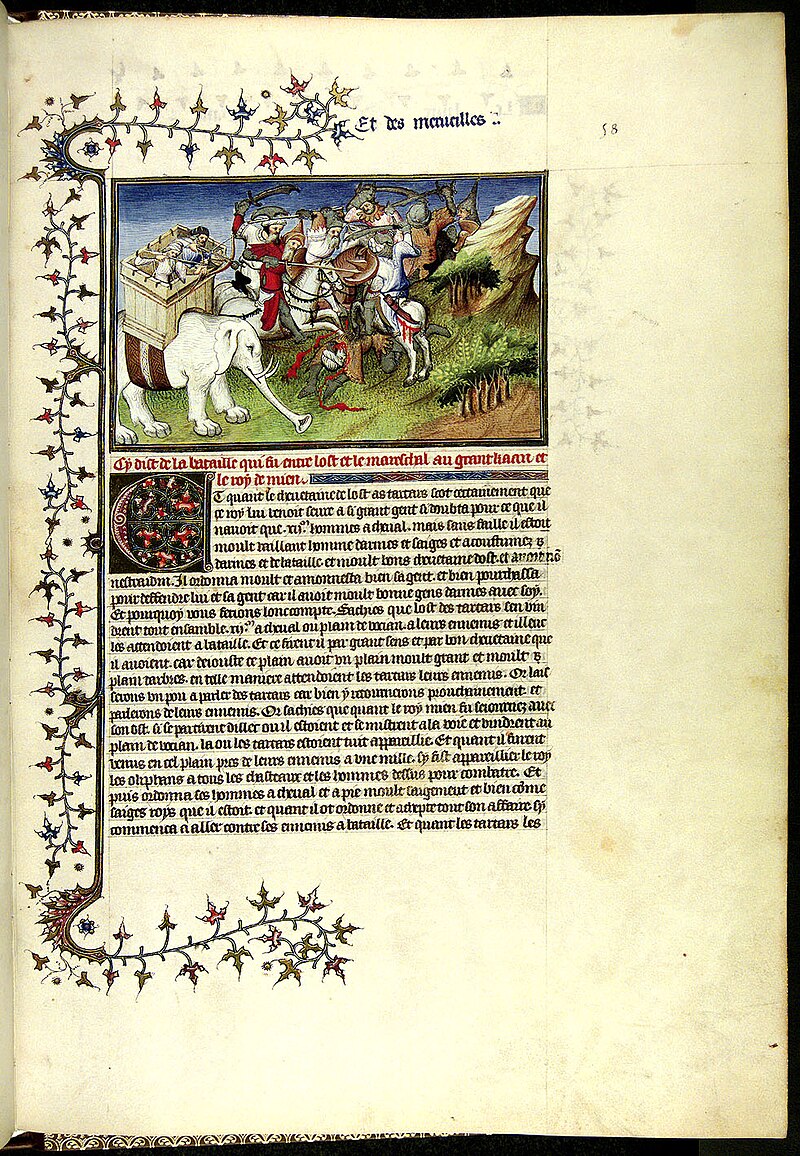 Et des merueilles
58
Cy dist de la bataille qui fu entre lost et le mareschal au grant kaan et
le roy de mien
Et quant le cheuetaine de lost as tartars sot certainement que
ce roy lui venoit seure a si grant gent si doubta pour ce que il
nauoit que .xij.m hommes a cheual. mais sans faille il estoit
moult vaillant homme darmes et saiges et acoustumez
darmes et de bataille et moult bons cheuetaine dost. et
Il ordonna moult et amonnesta bien sa gent. et bien pourchassa
pour deffendre lui et sa gent car il auoit moult bonne gens darmes auec soy.
Et pourquoy vous feroins loncompte. Sachies que lost des tartars sen vin
drent tout ensamble .xij.m a cheual ou plain de vocian. a leurs ennemis et illeuc
les attendoient a bataille. Et ce firent il par grant sens et par bon cheuetaine que
il auoient. car deiouste ce plain auoit vn plain moult grant et moult
plain darbres. en telle maniere attendoient les tartars leurs ennemis. Or lais
serons vn pou a parler des tartars car bien y retournerons prouchainement et
parlerons de leurs ennemis. Or sachies que quant le roy mien fu seiournez auec
son ost. si se partirent dillec ou il estoient et se mistrent a la voie et vindrent au
plain de vocian. la ou les tartars estoient tuit appareillie. Et quant il furent
venus en cel plain pres de leurs ennemis a vne mille. sy fist appareillier le roy
les oliphans a tous les chasteaux et les hommes dessus pour combatre. Et
puis ordonna ses hommes a cheual et a pie moult saigement et bien come
saiges roys que il estoit. et quant il ot ordonne et adrepte tout son affaire sy
commenca a aller contre ses ennemis a bataille. Et quant les tartars les